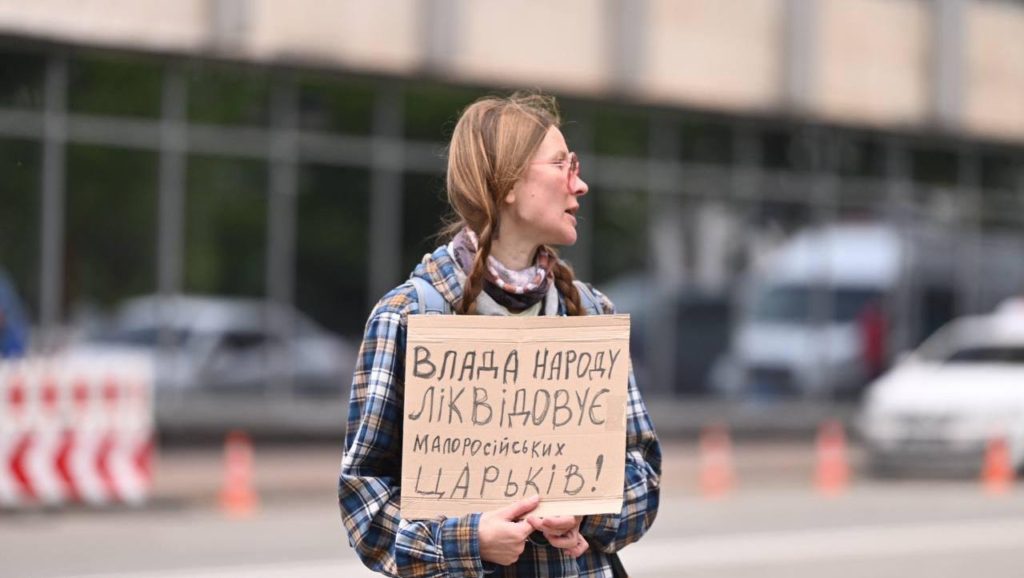 ВЛАДА НАРОДУ
ЛІКВІДОВУЄ
МАЛОРОСІЙСЬКИХ
ЦАРЬКІВ!